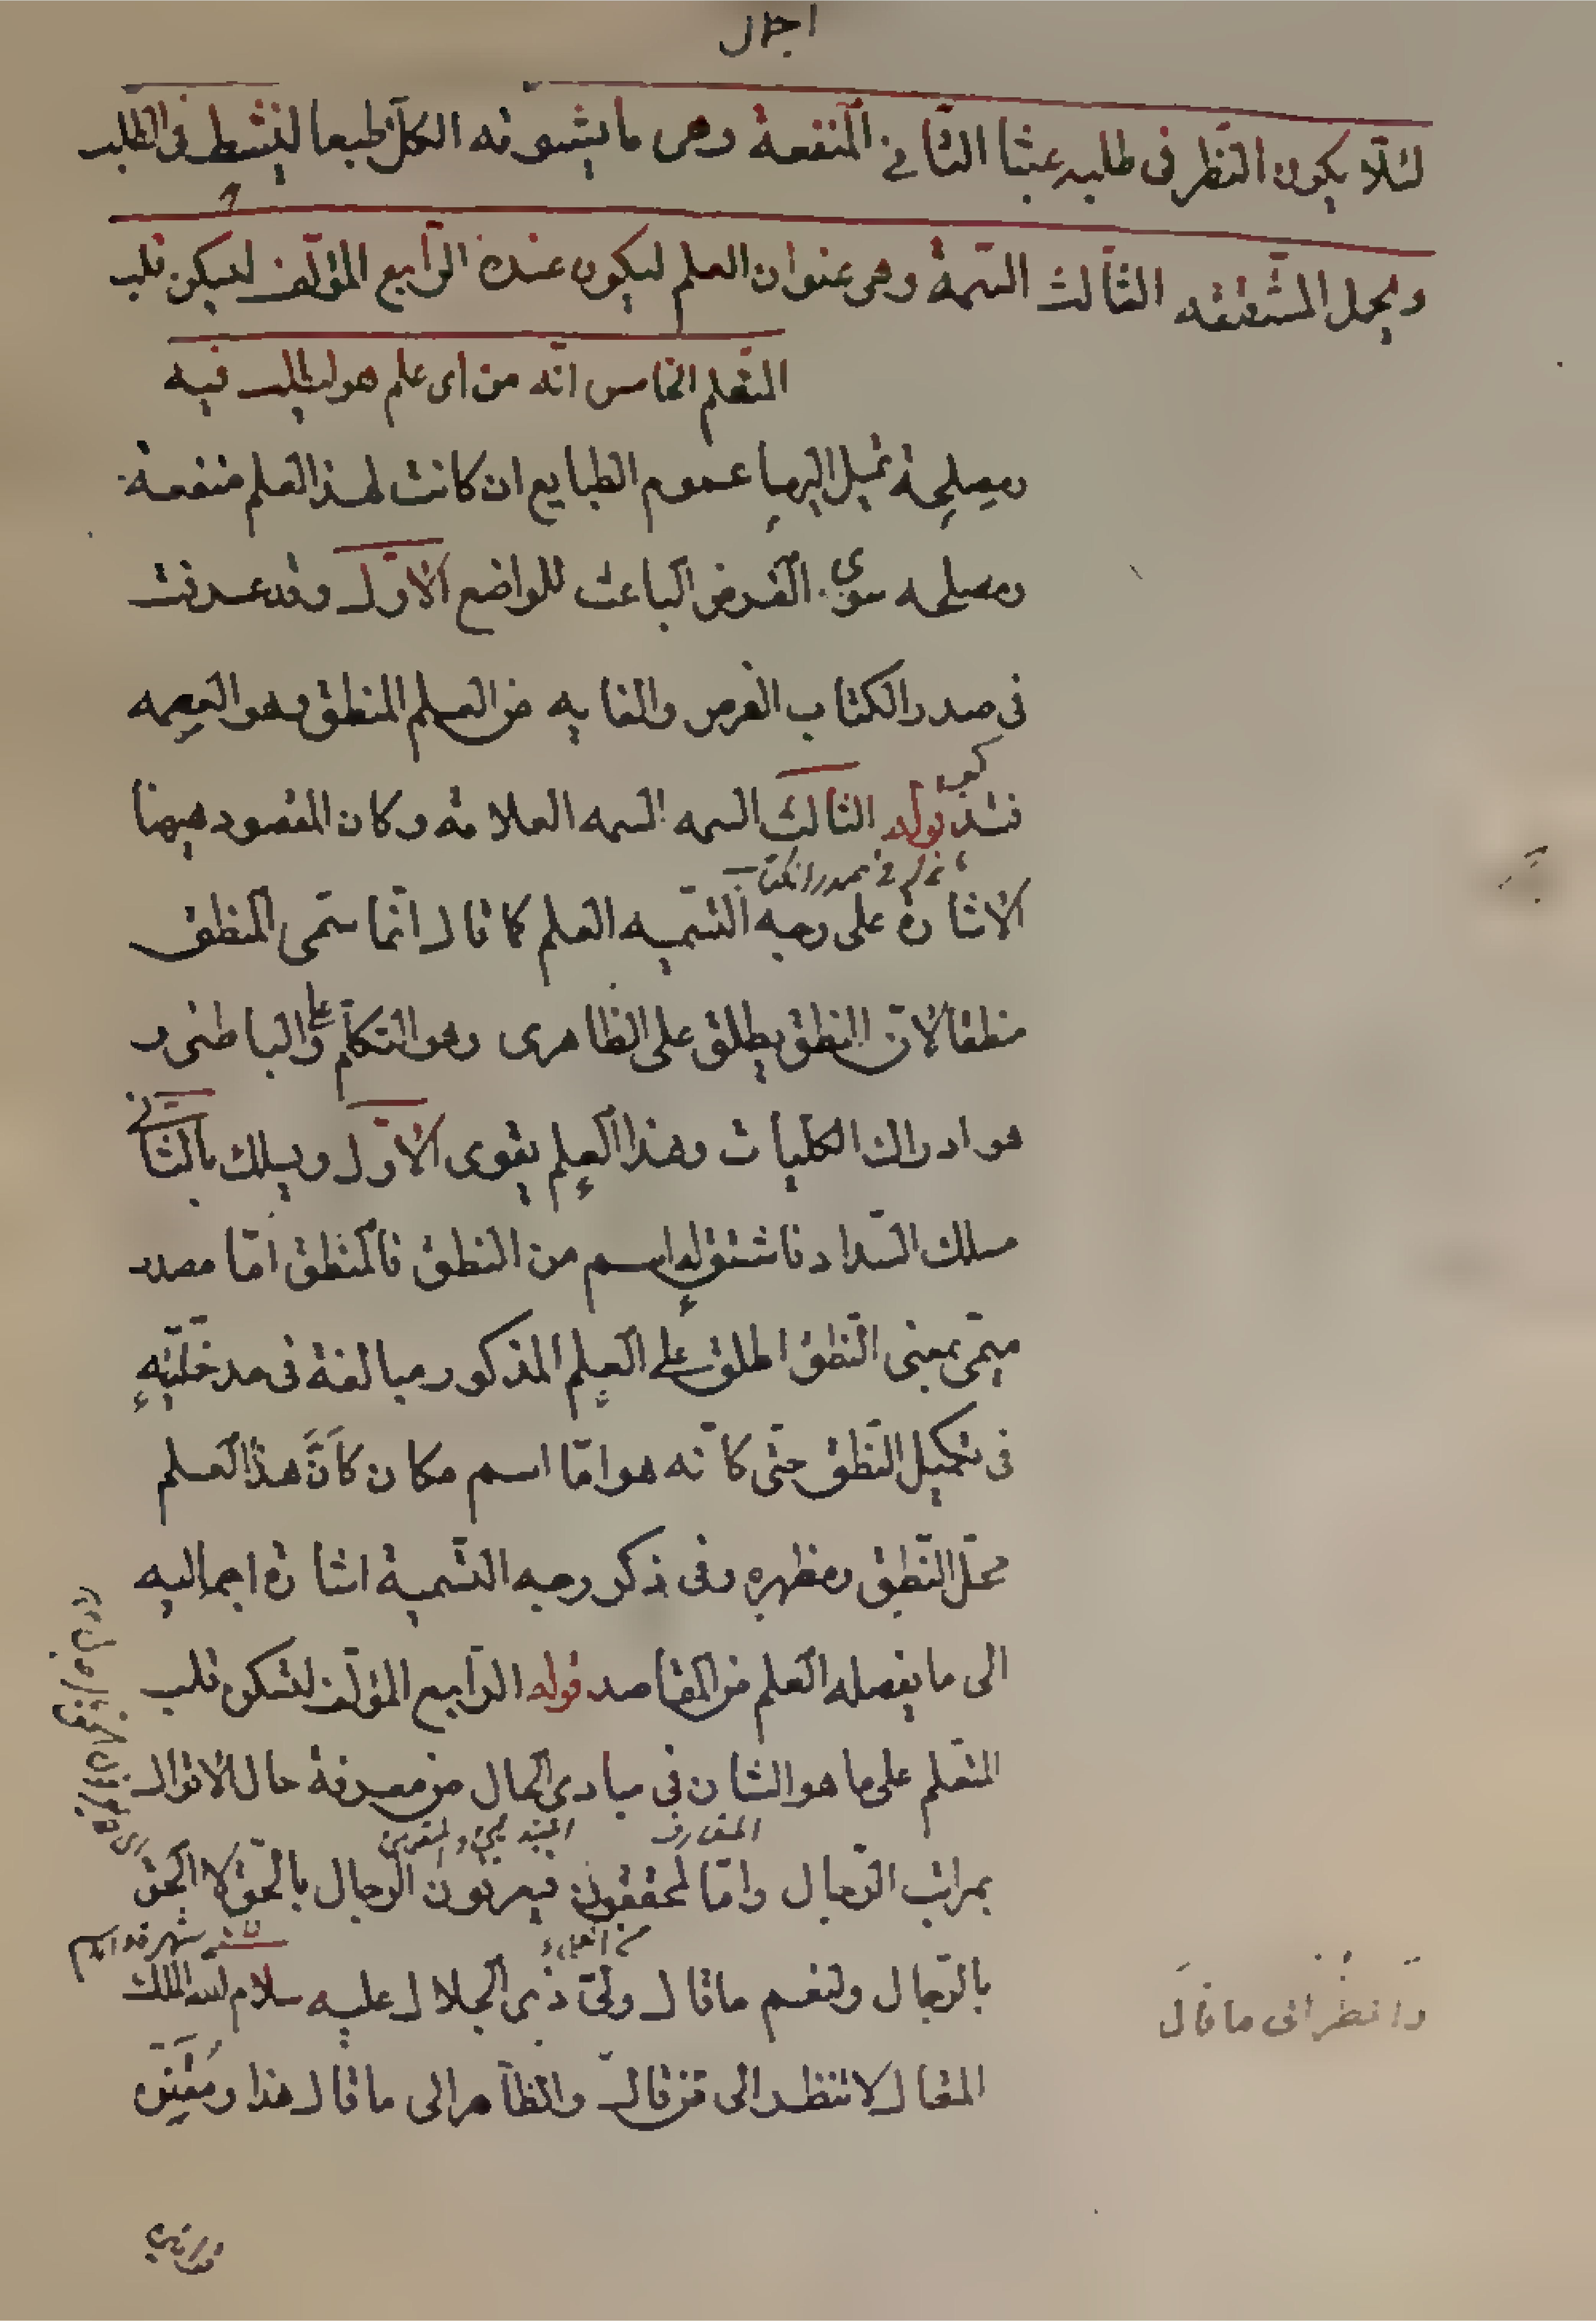 اجمال
لئلّا يكون النّظر فى طلبه عبثا الثّانى المنفعة وهى ما يتشوقه الكلّ طبعا لينشط فى الطلب
ويحمل المشقّة الثّالث السّمة وهى عنوان العلم ليكون عنده الرّابع المؤلّف ليسكن قلب
المتعلم الخامس انّه من اى علم هو ليطلب فيه
ومصلحة تميل اليها عموم الطبايع ان كانت لهذا العلم منفعة
ومصلحه سوى الغرض الباعث للواضع الاوّل وقد عرفت
فى صدر الكتاب الغرض والغايه من العلم المنطق وهو العصمه
فتذكر قوله الثالث السمه السمه العلامة وكان المقصود ههنا
فى صدر الكتاب
الاشارة على وجه التسميه العلم كما قال انّما سمّى المنطق
منطقا لانّ النطق يطلق على الظاهرى وهو التكلّم وعلى الباطنى و
هو ادراك الكليات وهذا العلم يقوى الاوّل ويسلك بالثّانى
مسلك السّداد فاشتق له اسم من النطق فالمنطق امّا مصدر
ميمّى بمعنى النّطق اطلق على العلم المذكور مبالغة فى مدخليّته
فى تكميل النّطق حتّى كانّه هو امّا اسم مكان كَاَنَّ هذا العلم
محلّ النّطق ومظهره وفى ذكر وجه التّسمية اشارة اجماليه
الى ما يفصله العلم من المقاصد قوله الرّابع المؤلّف لتسكن قلب
المتعلم على ما هو الشان فى مبادى الحال من معرفة حال الاقوال
بمراتب الرّجال وامّا المحققون فيعرفون الرجال بالحقّ لا الحق
بالرّجال ولنعم ما قال ولىّ ذى الجلال عليه سلام الله الملك
وانظر الى ما قال
المتعال لا تنظر الى من قال وانظر الى ما قال هذا ومن